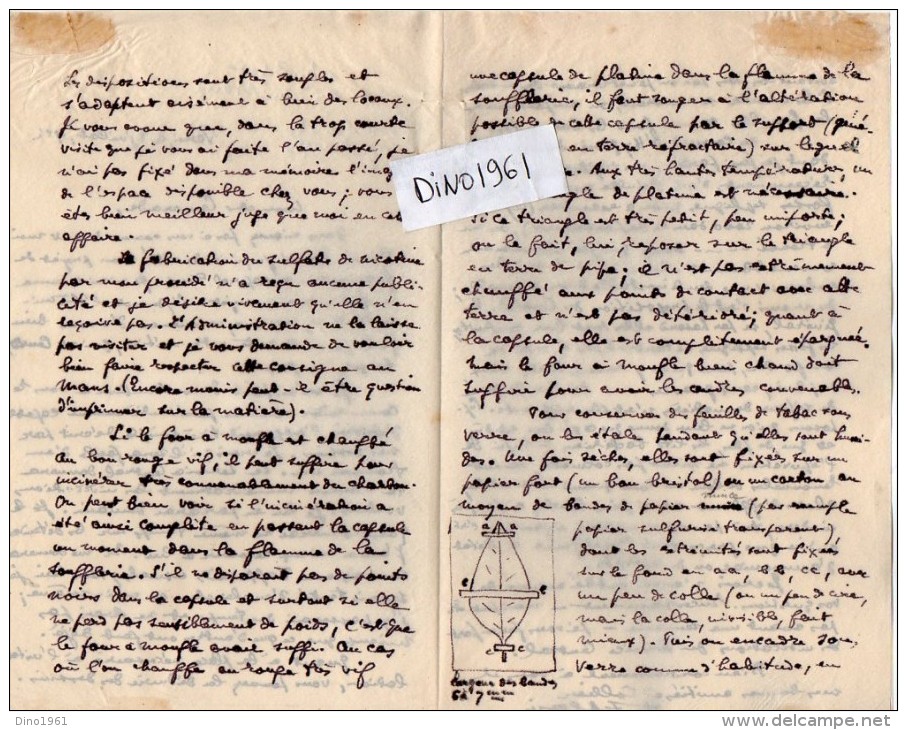 Les dispositions sont très souples et
s'adaptent aisément à bien des locaux.
Je vous avoue que, dans la trop courte
visite que je vous ai faite l'an passé, je
n'ai pas fixé dans ma mémoire
de l'espace disponible chez vous ; vous
êtes bien meilleur juge que moi en cette
affaire.
La fabrication du sulfate de nicotine
par mon procédé n'a reçu aucune publi-
cité et je désire vivement qu'elle n'en
reçoive pas. L'Administration ne la laisse
pas visiter et je vous demande de vouloir
bien faire respecter cette consigne au
Mans. (Encore moins peut-il être question
d'imprimer sur la matière).
Si le four à moufle est chauffé
au bon rouge vif, il peut suffire pour
incinérer très convenablement du charbon.
On peut bien voir si l'incinération a
été ainsi complète en passant la capsule
un moment dans la flamme de la
soufflerie. S'il ne disparait pas de points
noirs dans la capsule et surtout si elle
ne perd pas sensiblement de poids, c'est que
le four à moufle avait suffi. Au cas
où l'on chauffe au rouge très vif
une capsule de platine dans la flamme de la
soufflerie, il faut songer à l'altération
possible de cette capsule par le support (géné-
en terre réfractaire) sur lequel
Aux très hautes températures, un
de platine est nécessaire.
Si ce triangle est très petit, peu importe ;
on le fait, lui, reposer sur le triangle
en terre de pipe ; il n'est pas extrêmement
chauffé aux points de contact avec cette
terre et n'est pas détérioré ; quant à
la capsule, elle est complètement épargnée.
Mais le four à moufle bien chaud doit
suffire pour avoir les cendres convenables.
Pour conserver des feuilles de tabac sous
verre, on les étale pendant qu'elles sont humi-
des. Une fois sèches, elles sont fixées sur un
papier fort (un bon bristol) ou un carton au
moyen de bandes de papier mince (par exemple
papier sulfurisé transparent)
dont les extrémités sont fixées
sur le fond en aa, bb, cc, avec
un peu de colle (ou un peu de cire,
mais la colle, invisible, fait
mieux). Puis on encadre sous
verre comme d'habitude, en
a a
c c
c
largeur des bandes
6 à 7 mm
DiNO1961
Dino1961
delcampe.net